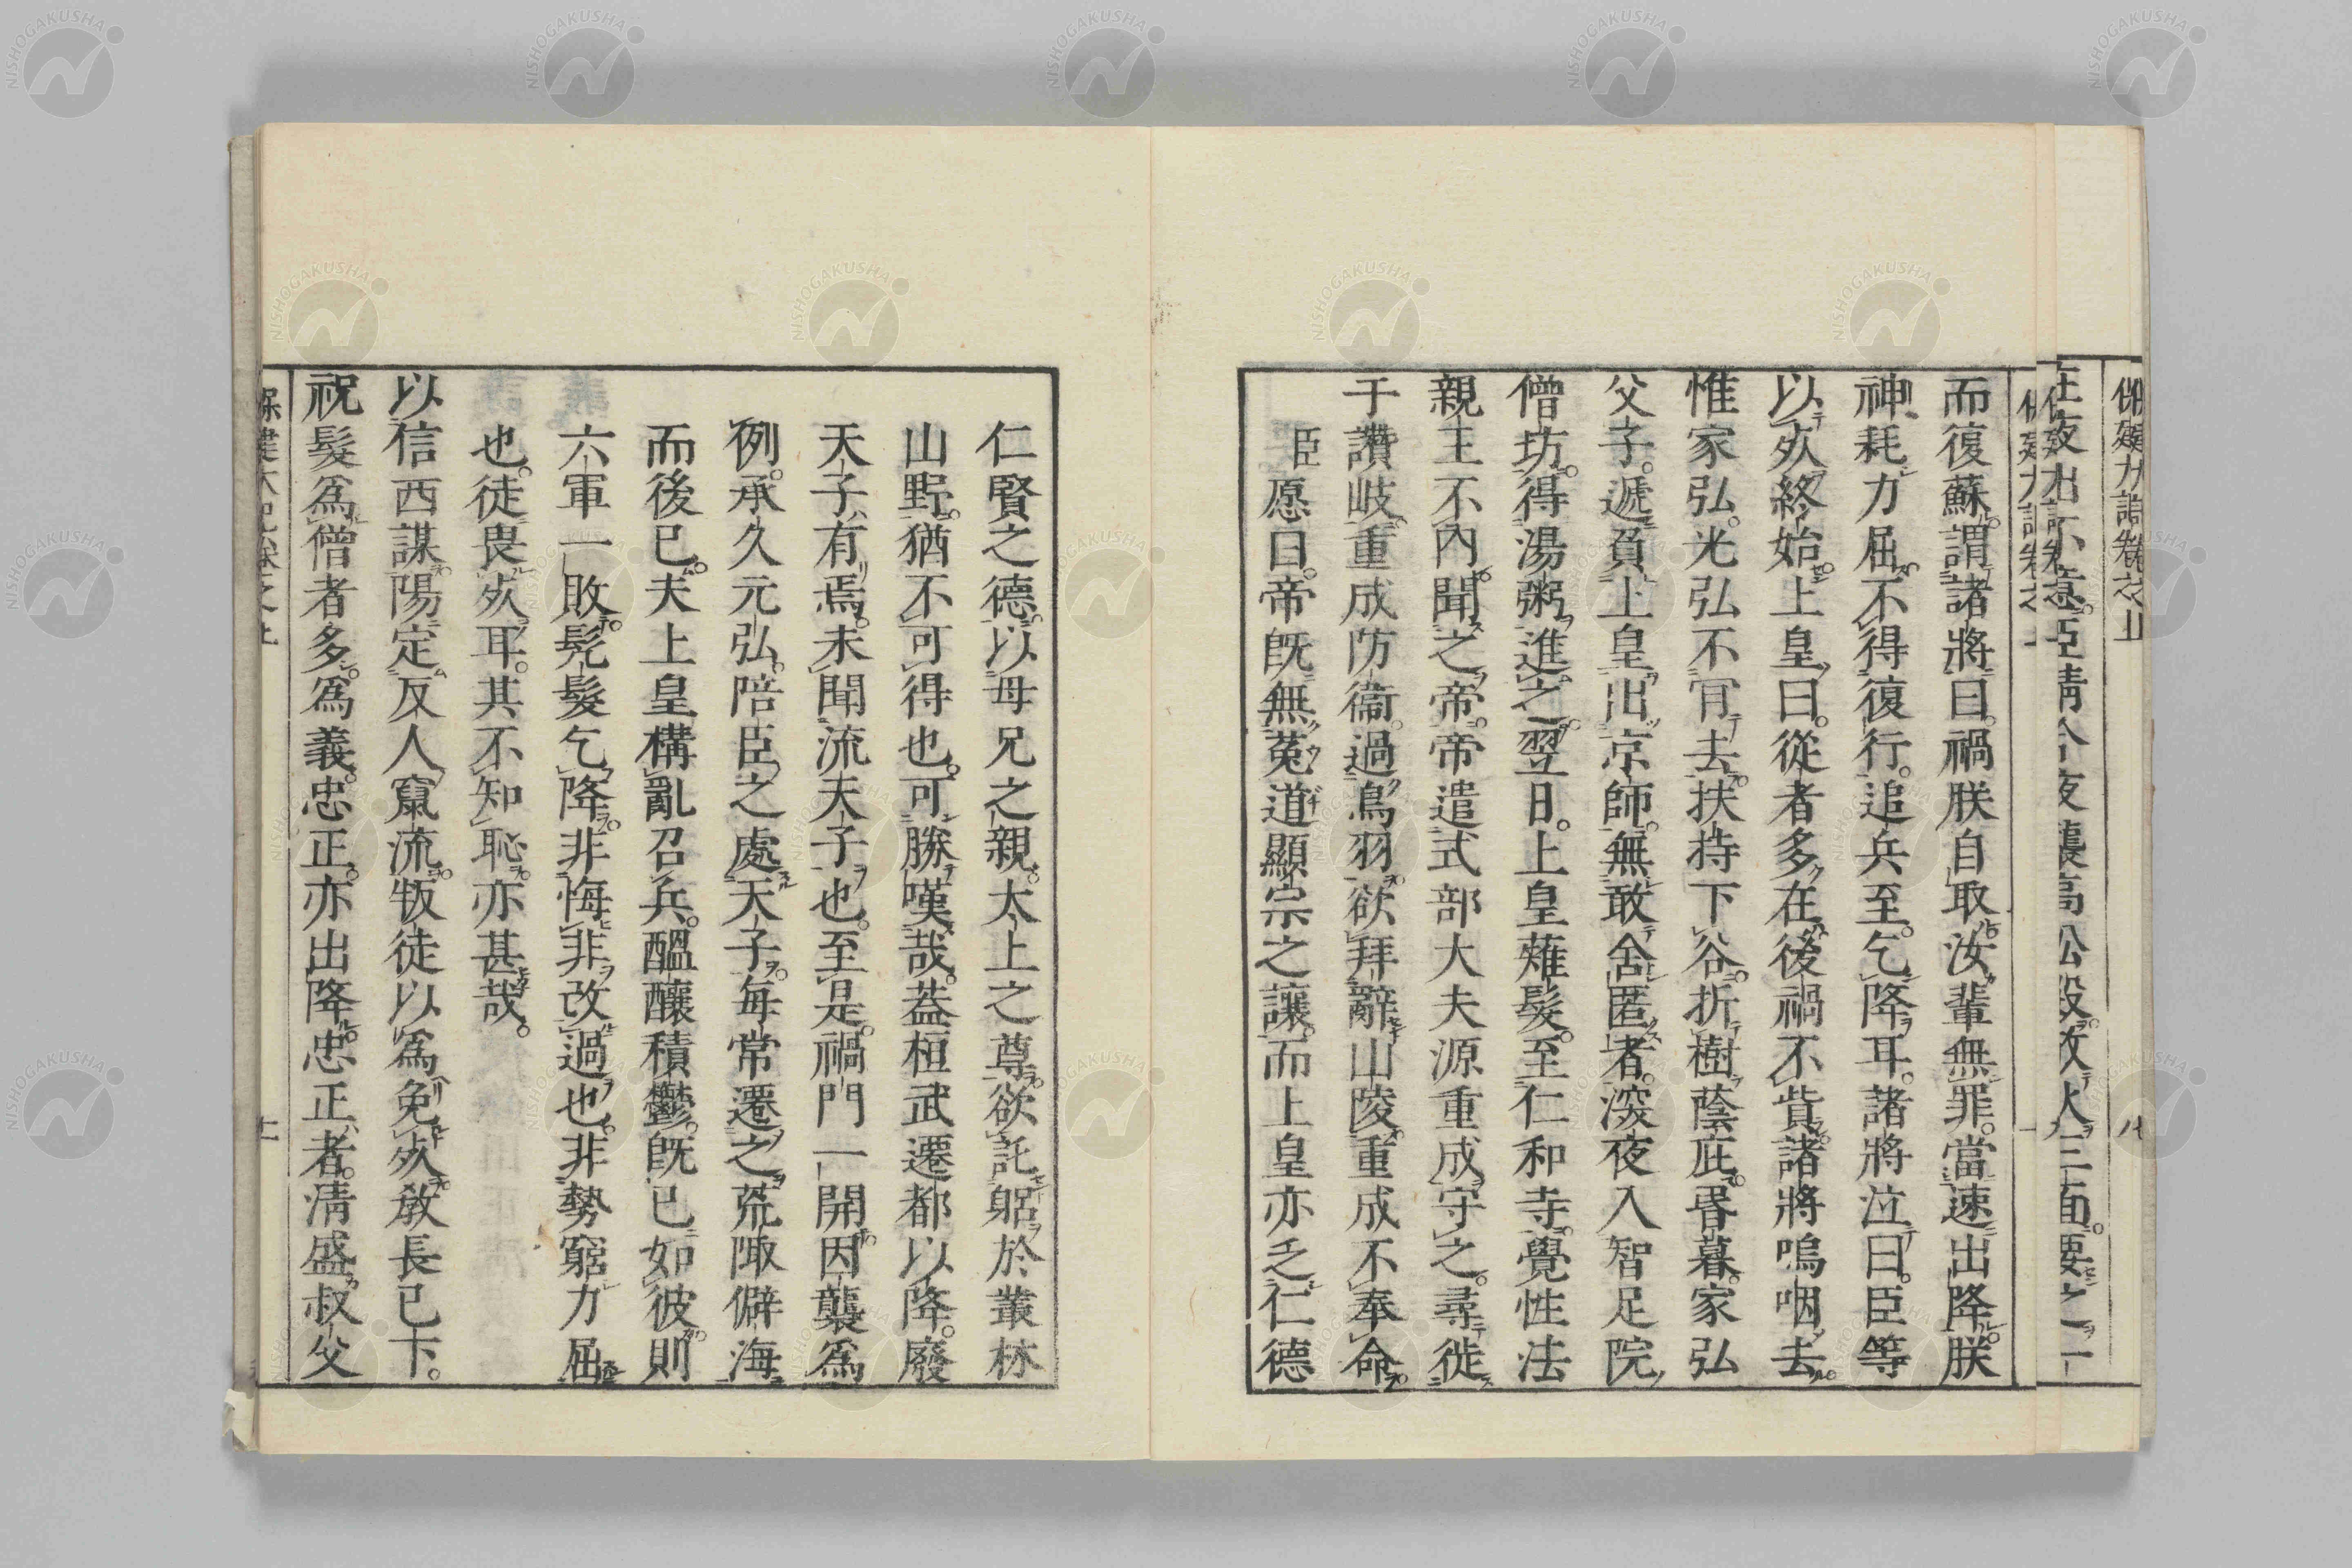 而復蘇。謂諸將曰。禍朕自取。汝輩無罪。當速出降。朕
神耗力屈。不得復行。追兵至。乞降耳。諸將泣曰。臣等
以㱙終始。上皇曰。從者多在後。禍不貲。諸將嗚咽去。
惟家弘。光弘不肎去。扶持下谷。折樹蔭庇。昏暮。家弘
父子。遞負上皇。出京師。無敢舍匿者。深夜入智足院
僧坊。得湯粥進之。翌日。上皇薙髮。至仁和寺。覺性法
親王不內。聞之帝。帝遣式部大夫源重成守之。尋徙
于讚岐。重成防衞。過鳥羽。欲拜辭山陵。重成不奉命。
臣愿曰。帝旣無菟道顯宗之讓。而上皇亦乏仁德
仁賢之德。以母兄之親。太上之尊。欲託躬於叢林
山野。猶不可得也。可勝嘆哉。葢桓武遷都以降。廢
天子有焉。未聞流天子也。至是。禍門一開。因襲爲
例。承久元弘。陪臣之處天子。每常遷之荒陬僻海
而後已。夫上皇構亂召兵。醞釀積鬱。旣已如彼。則
六軍一敗。髠髮乞降。非悔非改過也。非勢窮力屈
也。徒畏㱙耳。其不知恥。亦甚哉。
以信西謀。陽定反人竄流。叛徒以爲免㱙。敎長已下。
祝髮爲僧者多。爲義。忠正。亦出降。忠正者。淸盛叔父
NISHOGAKUSHA